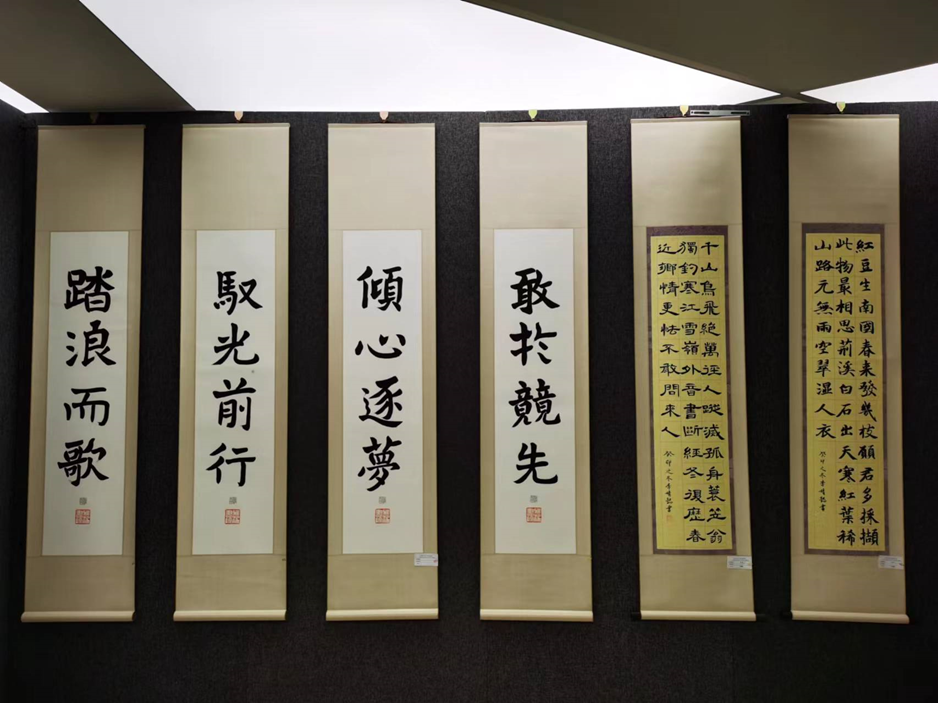 紅豆生南國春来發幾枝願君多採擷
此物最相思荊溪白石出天寒紅葉稀
山路元無雨空翠湿人衣
癸卯之冬
千山鳥飛絕萬徑人蹤滅孤身蓑笠翁
獨釣寒江雪嶺外音書斷經冬復歷春
近鄉情更怯不敢問来人
癸卯之冬
敢於競先
傾心逐夢
馭光前行
踏浪而歌